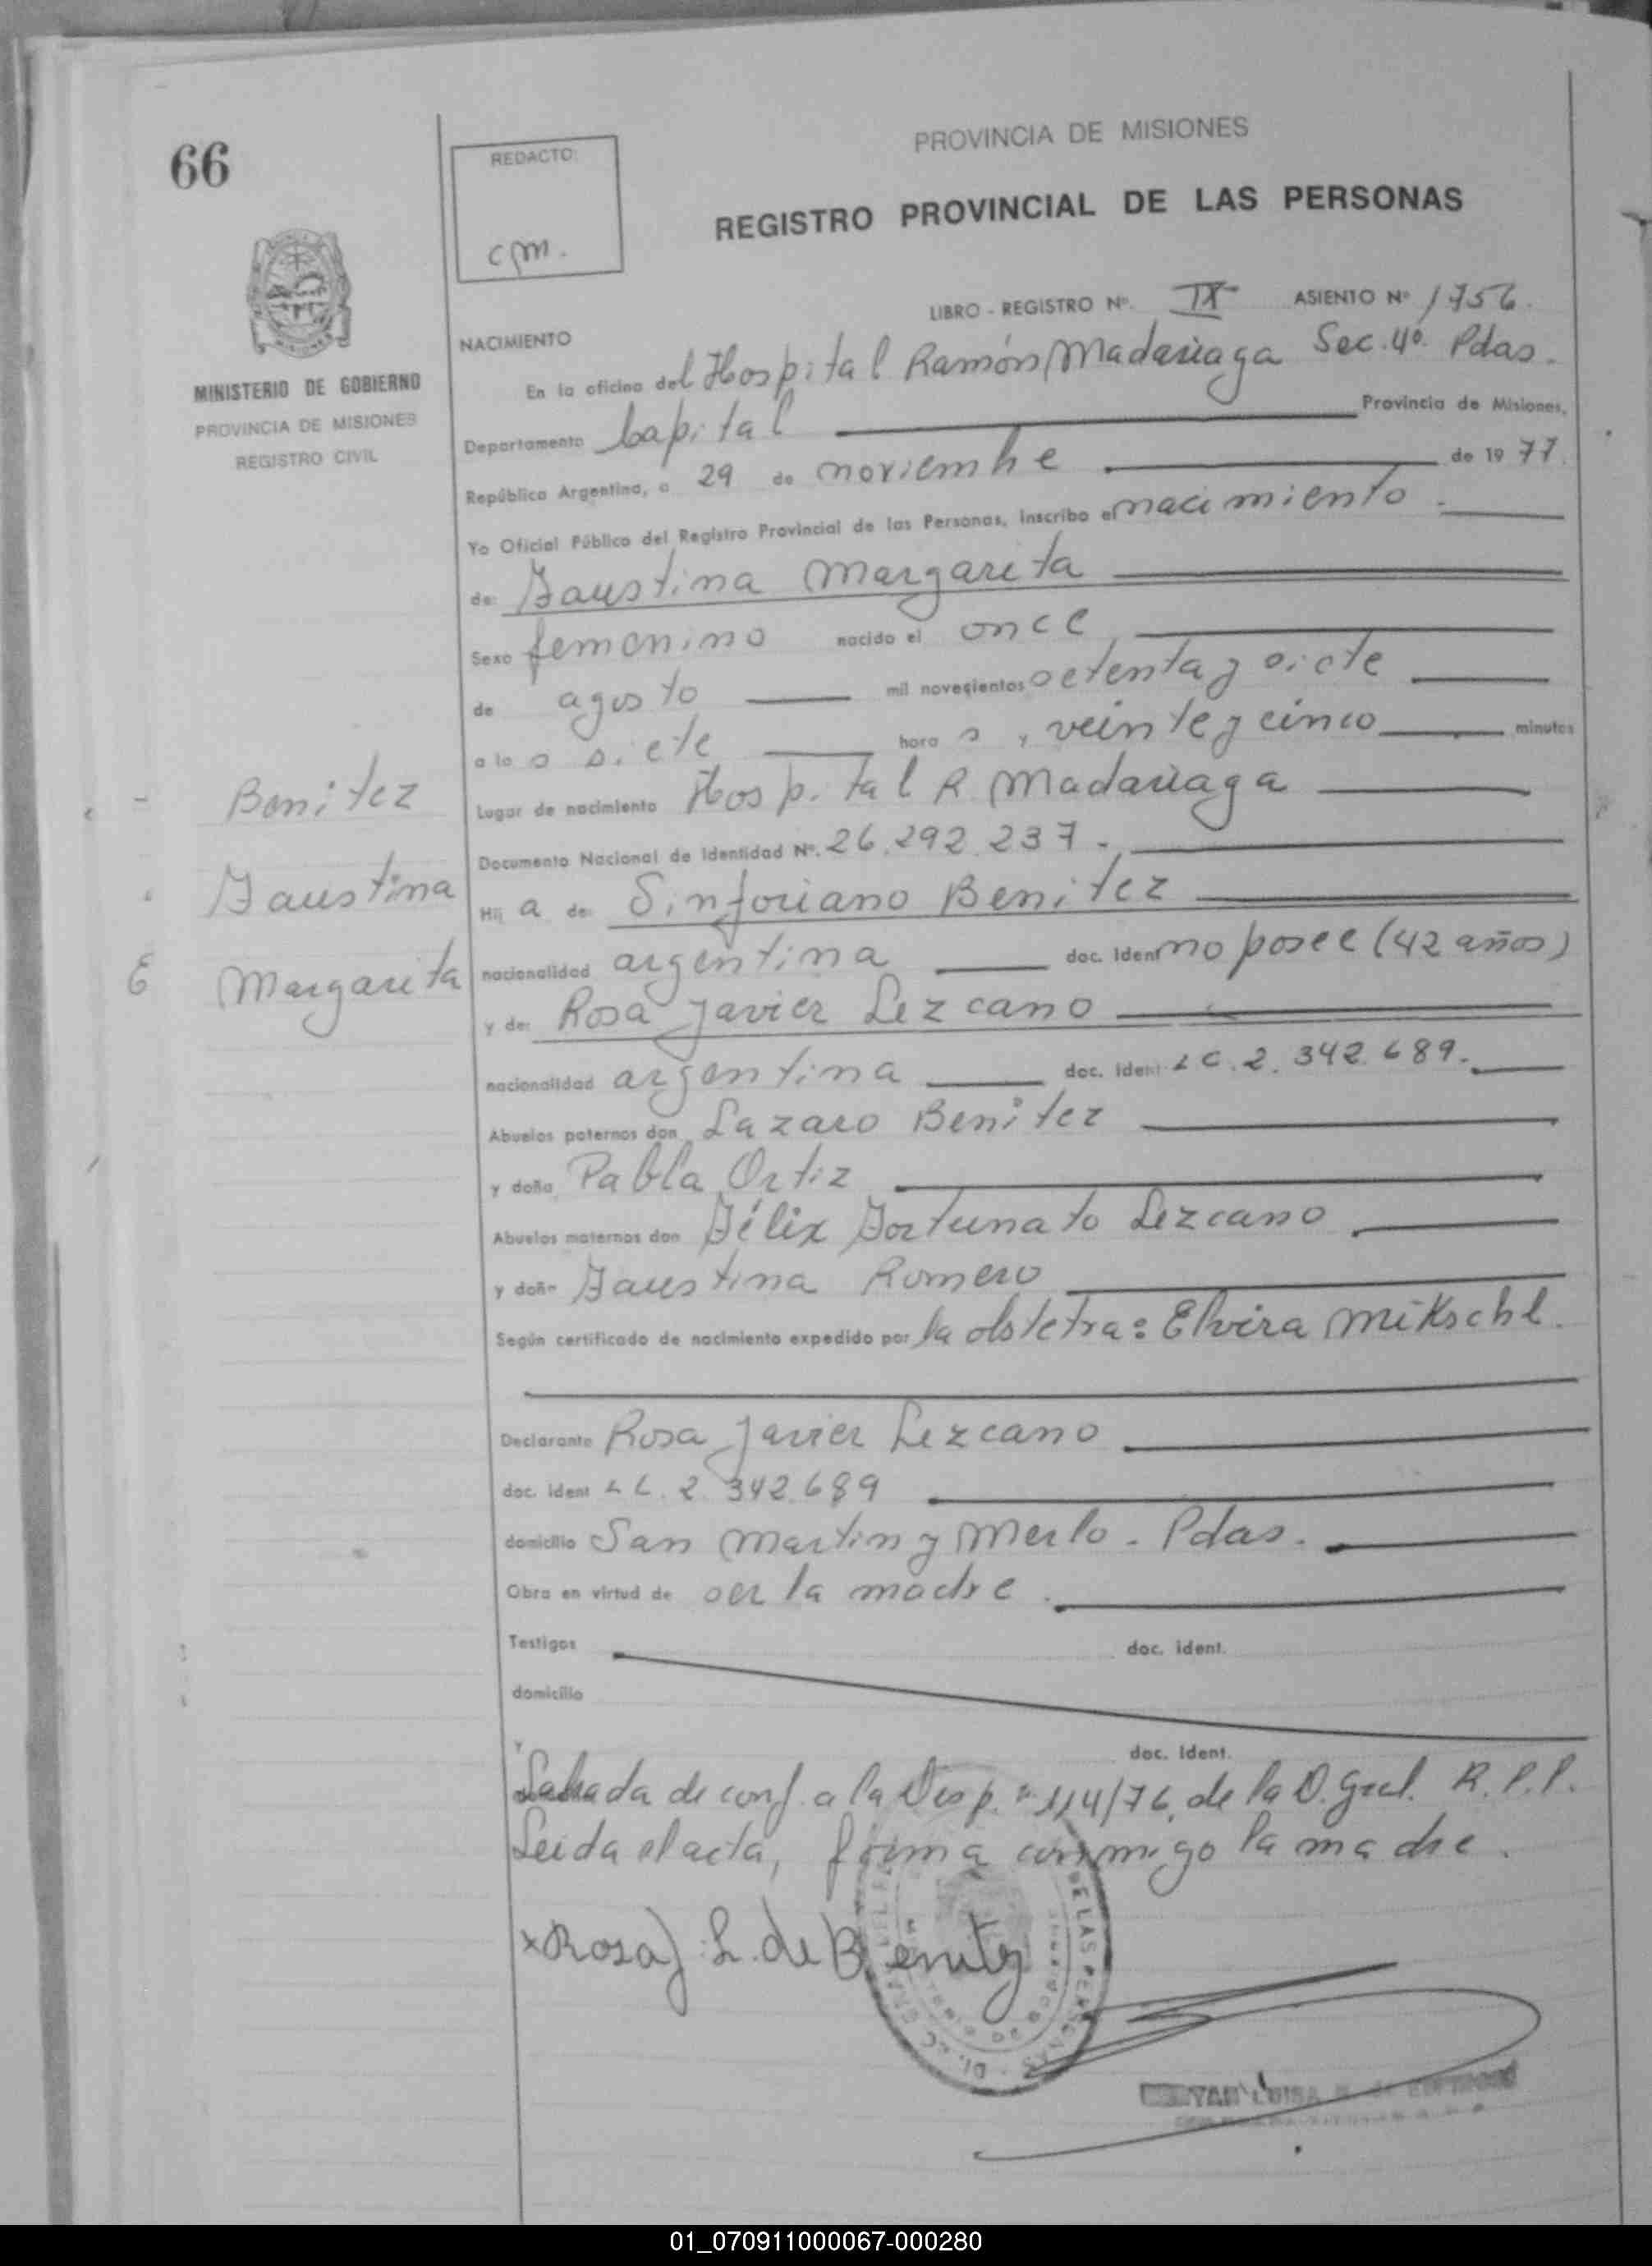 66
REDACTO:
cpm.
PROVINCIA DE MISIONES
REGISTRO PROVINCIAL DE LAS PERSONAS
LIBRO - REGISTRO Nº. IX ASIENTO Nº 1756.
MINISTERIO DE GOBIERNO
PROVINCIA DE MISIONES
REGISTRO CIVIL
NACIMIENTO
En la oficina del Hospital Ramón Madariaga Sec. 4º. Pdas.
Departamento Capital Provincia de Misiones,
República Argentina, a 29 de noviembre de 1977.
Yo Oficial Público del Registro Provincial de las Personas, inscribo el nacimiento.
de: Faustina Margarita
Sexo femenino nacido el once
de agosto mil novecientos setenta y siete
a las siete horas y veinte y cinco minutos
Lugar de nacimiento Hospital R Madariaga
Documento Nacional de Identidad Nº. 26.292.237.
Benitez
Faustina
Margarita
Hija de: Sinforiano Benitez
nacionalidad argentina doc. Ident no posee (42 años)
y de: Rosa Javier Lezcano
nacionalidad argentina doc. Ident LC. 2.342.689.
Abuelos paternos don Lazaro Benitez
y doña Pabla Ortiz
Abuelos maternos don Félix Fortunato Lezcano
y doña Faustina Romero
Según certificado de nacimiento expedido por la obstetra: Elvira Mikschl.
Declarante Rosa Javier Lezcano
doc. ident LC. 2.342.689
domicilio San Martin y Merlo - Pdas.
Obra en virtud de ser la madre.
Testigos doc. ident.
domicilio
Y doc. Ident.
Labrada de conf. a la Disp. nº 114/76, de la D. Gral. R.P.P.
Leida el acta, firma conmigo la madre.
x Rosa J. L. de Benitez
DE LAS PERSONAS
01_070911000067-000280